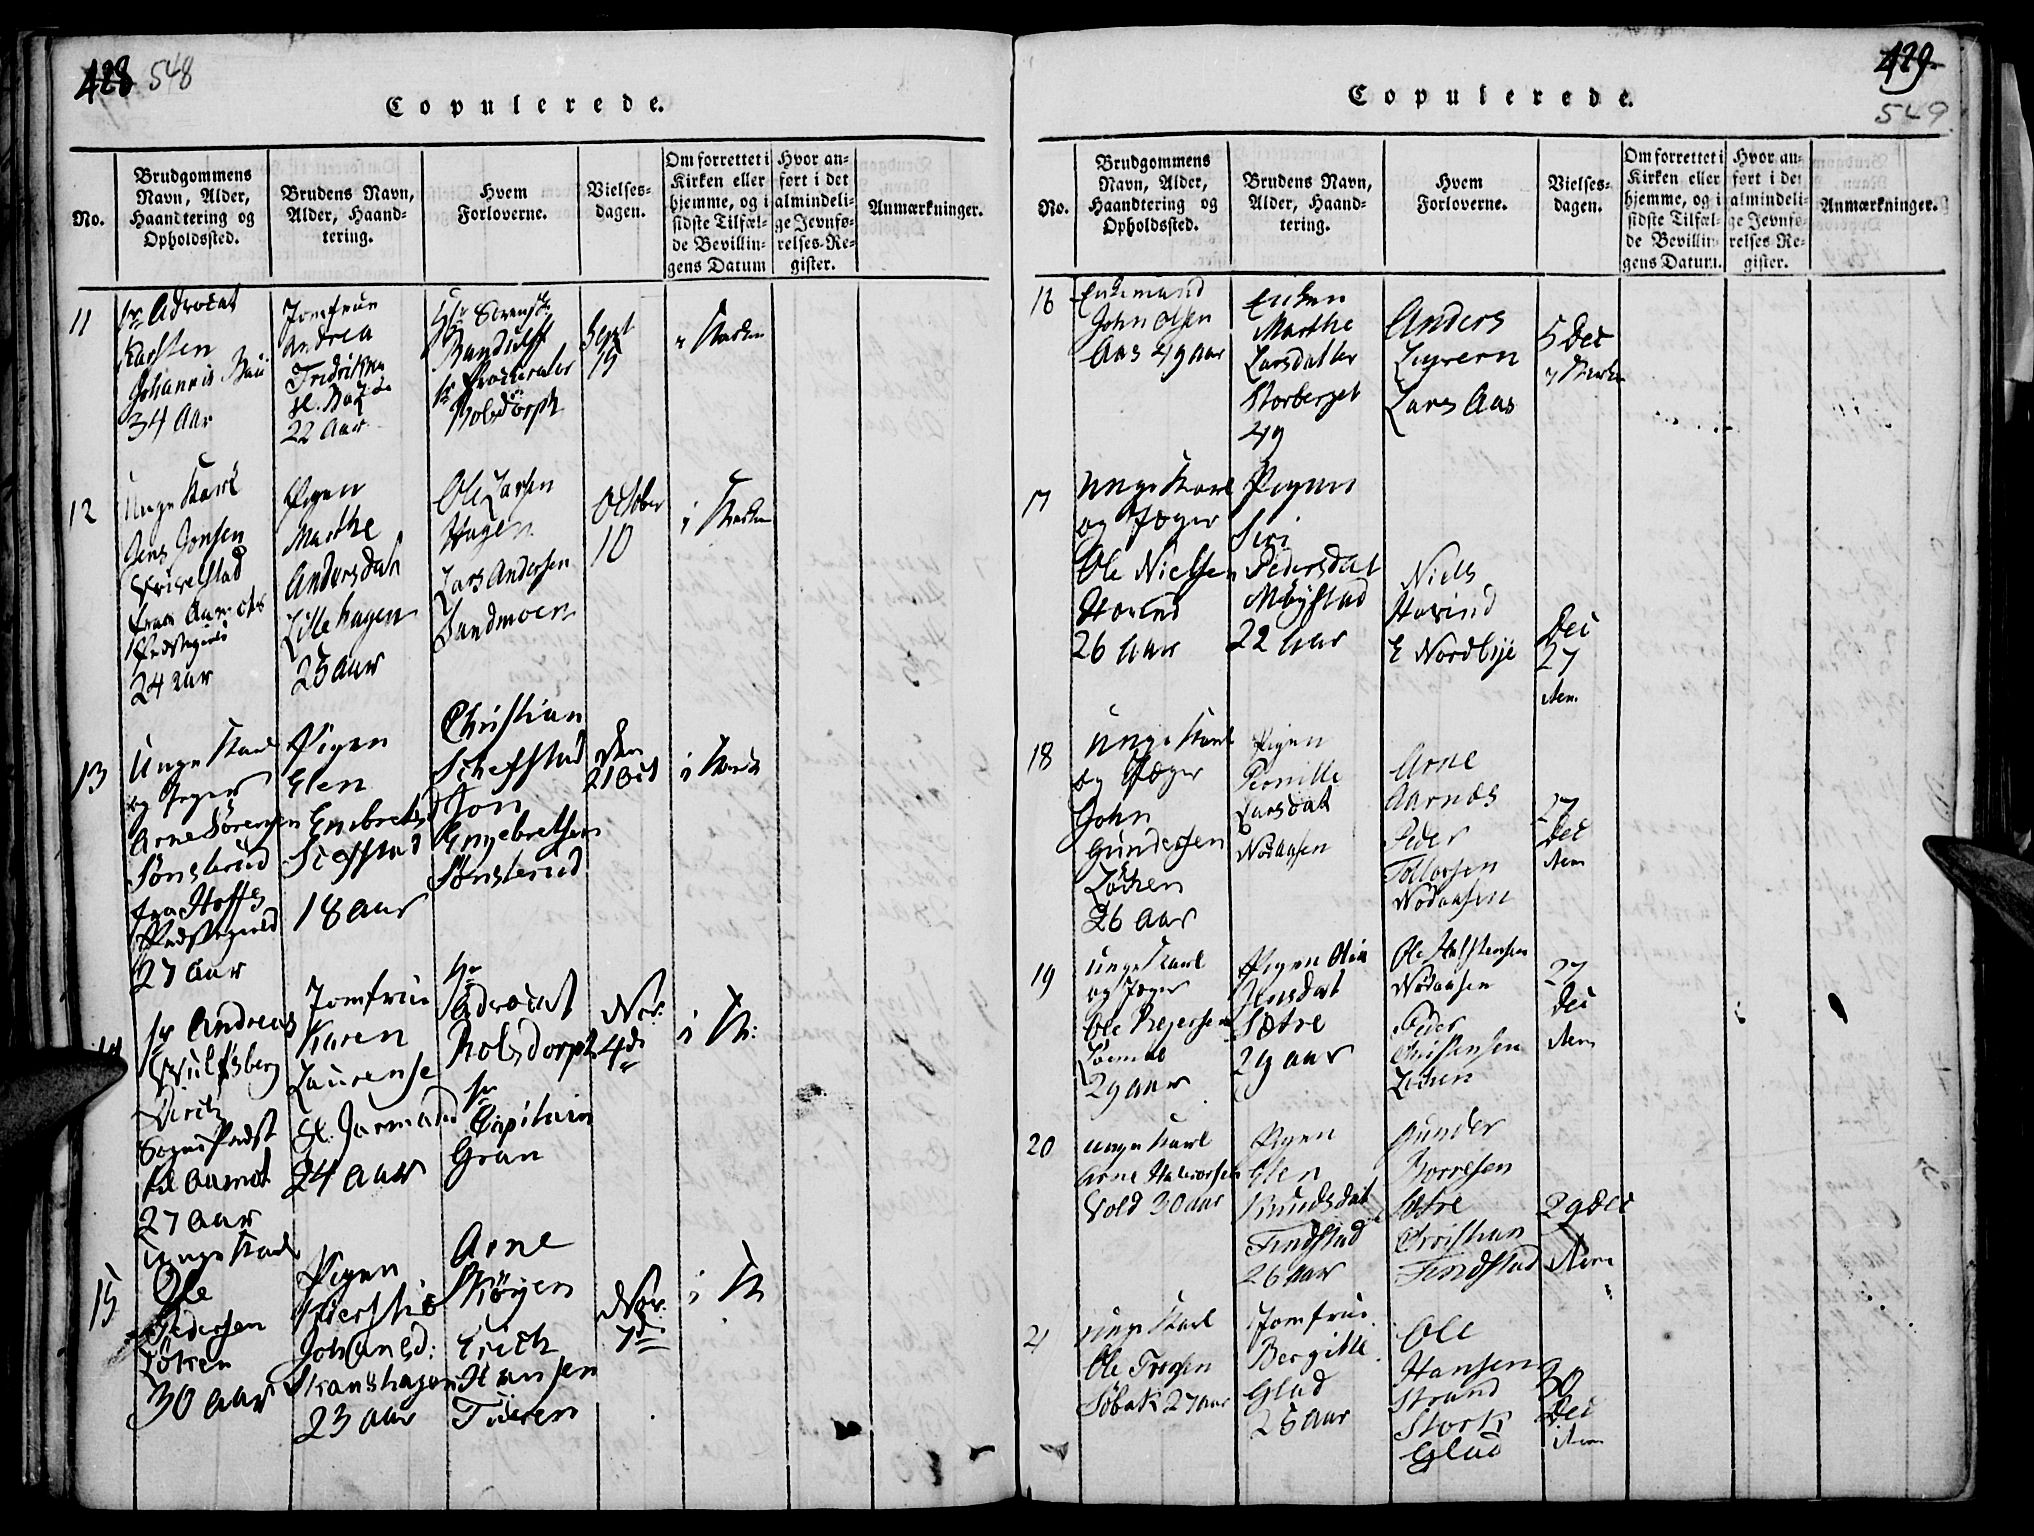 428 548
Copulerede.
No.
Brudgommens
Navn, Alder,
Haandtering og
Opholdssted.
Brudens Navn,
Alder, Haand-
tering.
Hvem
Forloverne.
Vielses-
dagen.
Om forrettet i
Kirken eller
hjemme, og i
sidste Tilfæl-
de Bevillin-
gens Datum
Hvor an-
ført i det
almindeli-
ge Jevnfø-
relses-Re-
gister.
Anmærkninger.
11
Hr Advocat
Karsten
Johannis
34 Aar
Jomfrue
Andrea
Fredrikke
22 Aar
Hr
Hr Prockurator
Rolsdorph
Sept
19
i Kirken
12
Unge Karl
Jens Jonsen
fra Aamots
Præstegield
24 aar
Pigen
Marthe
Andersdat
Lillehagen
25 aar
Ole Larsen
Hagen
Lars Andersen
Sandmoen
October
10
i Kirken
13
Unge Karl
og Jæger
Arne Sørensen
Sønsterud
fra Hoffs
Præstegield
27 aar
Pigen
Elen
Embretsd
18 aar
Christian
Jon
Engebretsen
Sønsterud
den
21 Oct
i Kirk
14
Hr Andreas
Wulfsberg
Sogne Præst
til Aamot
27 aar
Jomfrue
Karen
Laurense
Sl. Jarmand
24 aar
Hr
Advocat
Rolsdorph
Hr
Capitain
Gran
Nov.
4de
i K:
15
Unge Karl
Ole
Pedersen
Løken
30 aar
Pigen
Kiersti
Johansd:
Skanshagen
23 aar
Arne
Erich
Hansen
Tüeren
Nov.
7de
i K
429
549
Copulerede.
No.
Brudgommens
Navn, Alder,
Haandtering og
Opholdssted.
Brudens Navn,
Alder, Haand-
tering.
Hvem
Forloverne.
Vielses-
dagen.
Om forrettet i
Kirken eller
hjemme, og i
sidste Tilfæl-
de Bevillin-
gens Datum.
Hvor an-
ført i det
almindeli-
ge Jevnfø-
relses-Re-
gister.
Anmærkninger.
16
Enkemand
John Olsen
Aas 49 aar
Enken
Marthe
Larsdatter
Storberget
49
Anders
Lars Aas
5 Dec
i Kirken
17
Unge Karl
og Jæger
Ole Nielsen
26 aar
Pigen
Siri
Pedersdat
Møystad
22 aar
Niels
Havind
E Nordbye
Dec
27
item
18
Unge Karl
og Jæger
John
Gundersen
Løken
26 aar
Pigen
Pernille
Larsdat
Nodansen
Arne
Aarnæs
Peder
Tollorsen
Nodansen
27
Dec
item
19
Unge Karl
og Jæger
Ole
29 aar
Pigen Olia
Jensdat
Sætre
29 aar
Ole Halstensen
Nodansen
Peder
Christansen
Løken
27
Dec
item
20
Unge Karl
Arne Halvorsen
Vold 30 aar
Pigen
Elen
Knudsdat
Findstad
26 aar
Gunder
Borresen
Sætre
Christian
Findstad
29 Dec
item
21
Unge Karl
Ole
Søbak 27 aar
Jomfrue
Bergitte
Glad
25 aar
Ole
Hansen
Strand
Stork
Glad
30
Dec
item